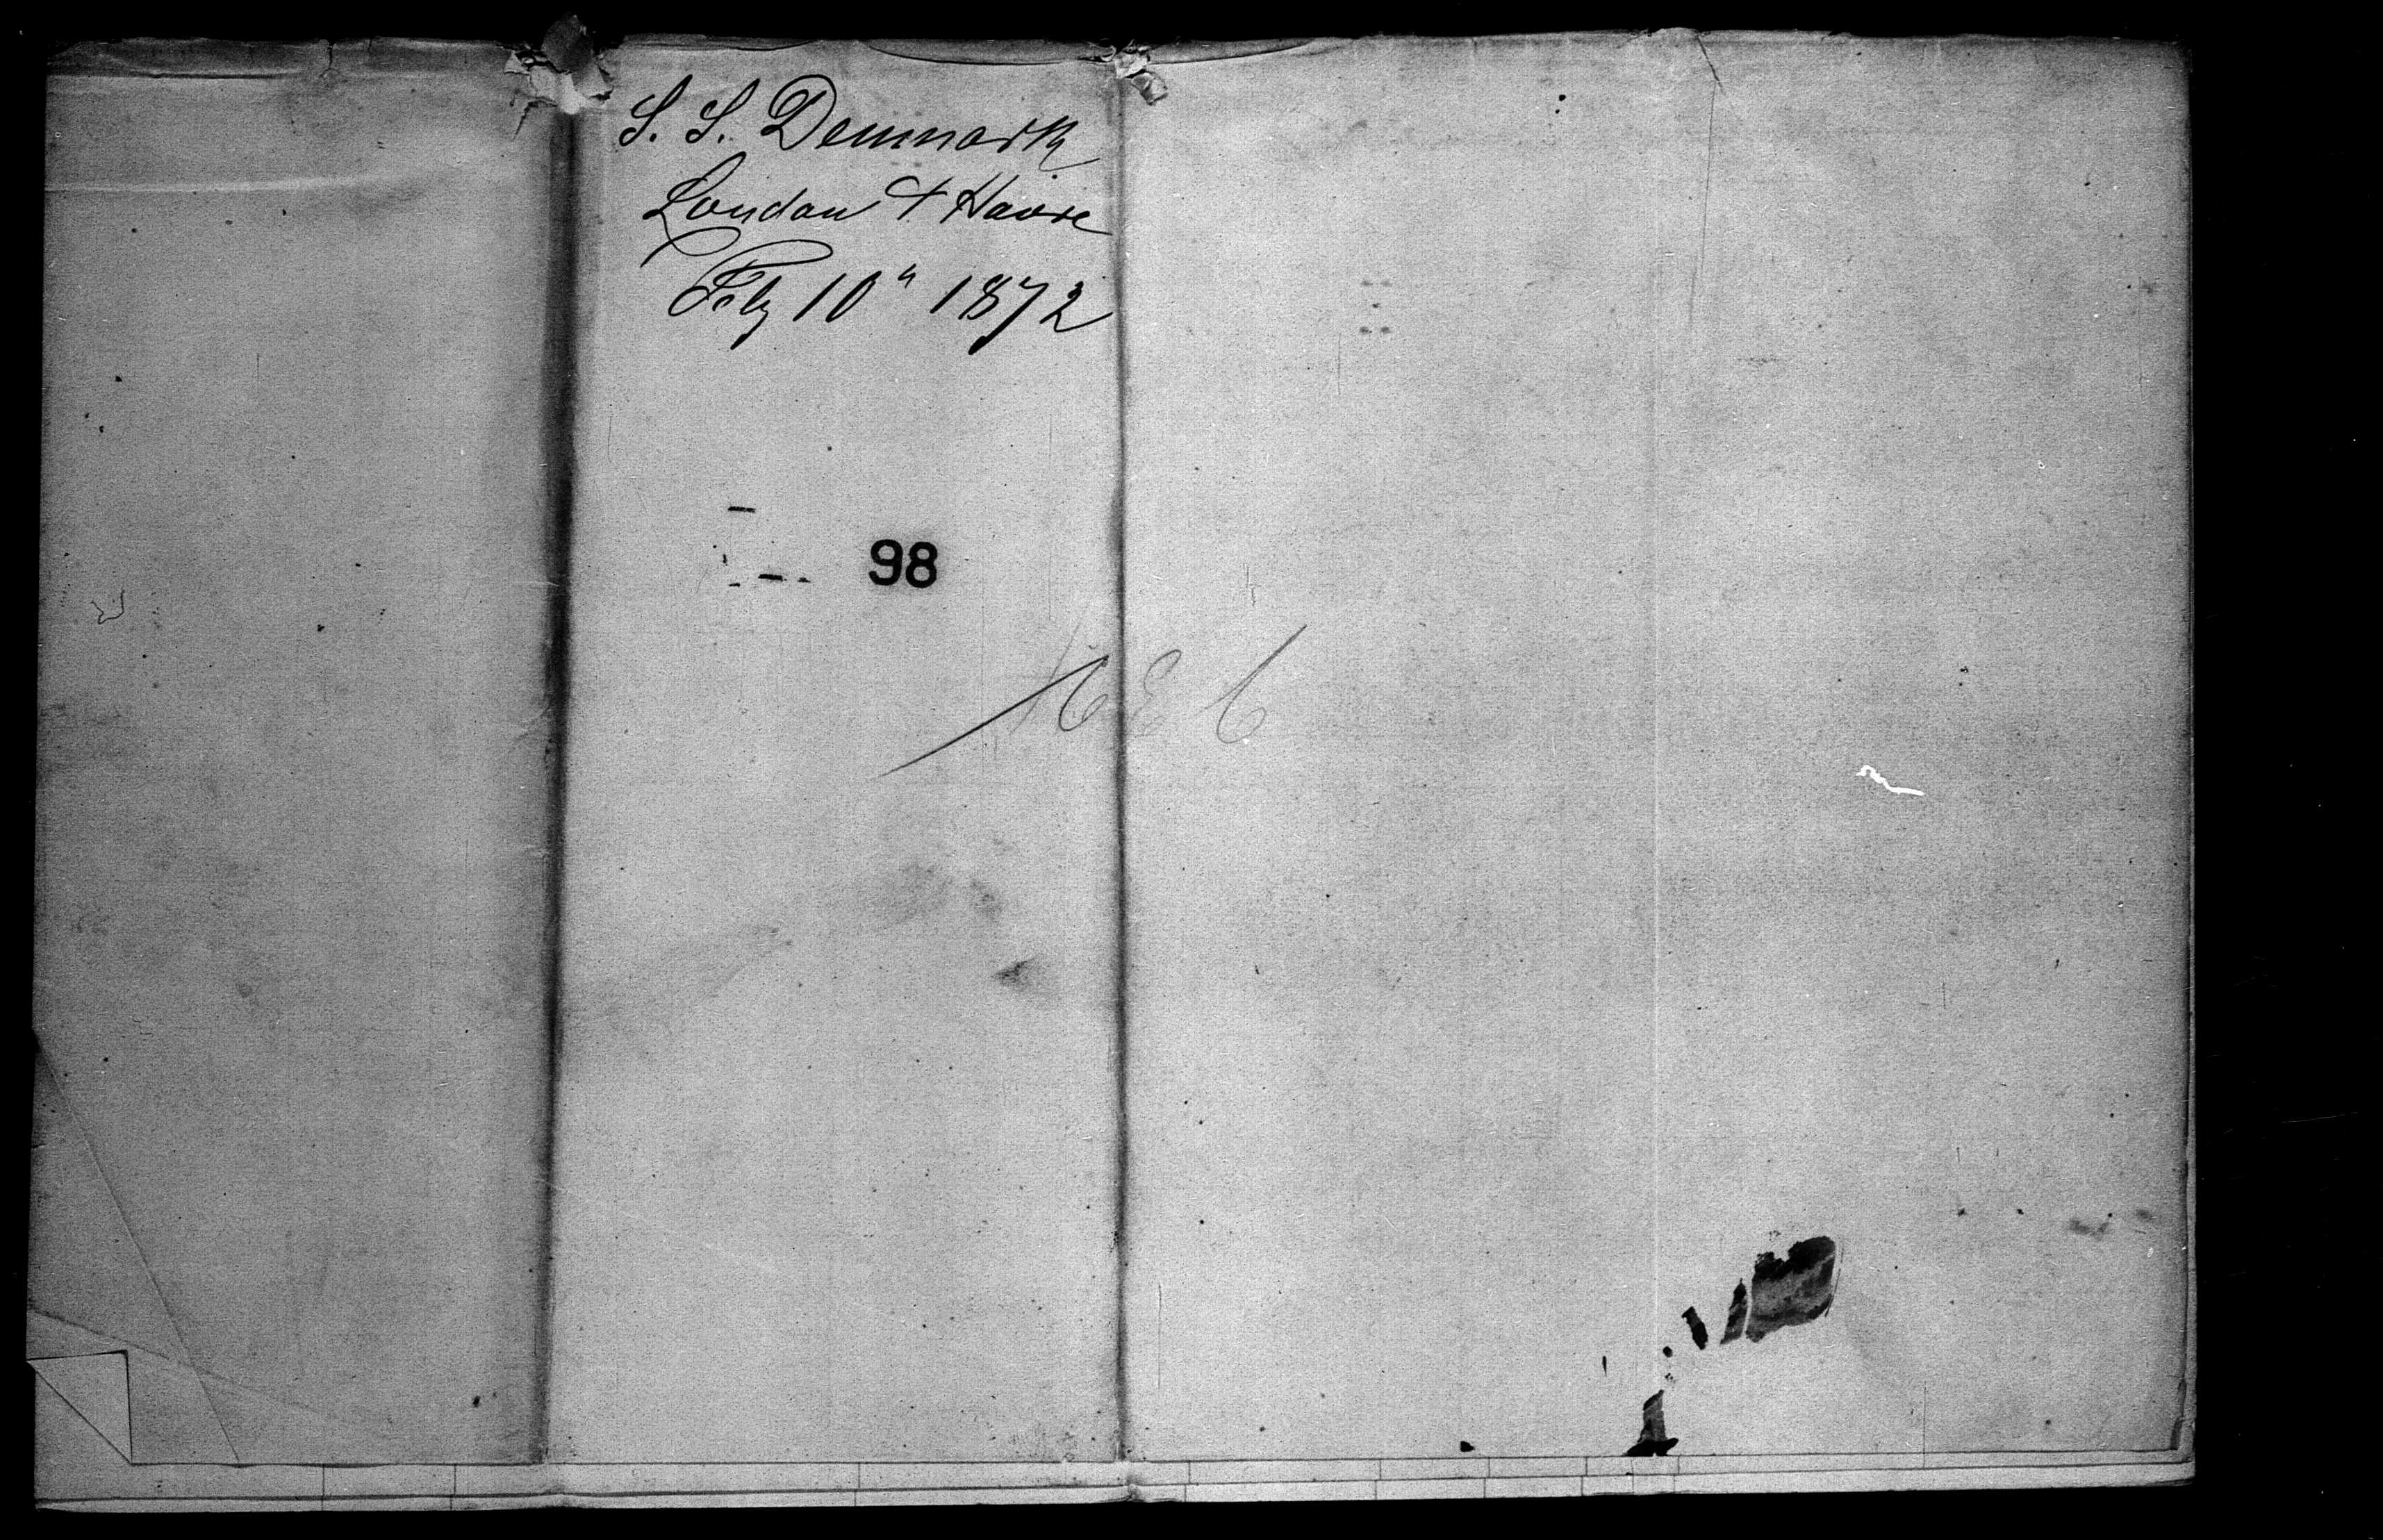 S. S. Denmark
London & Havre
Feby 10" 1872
98